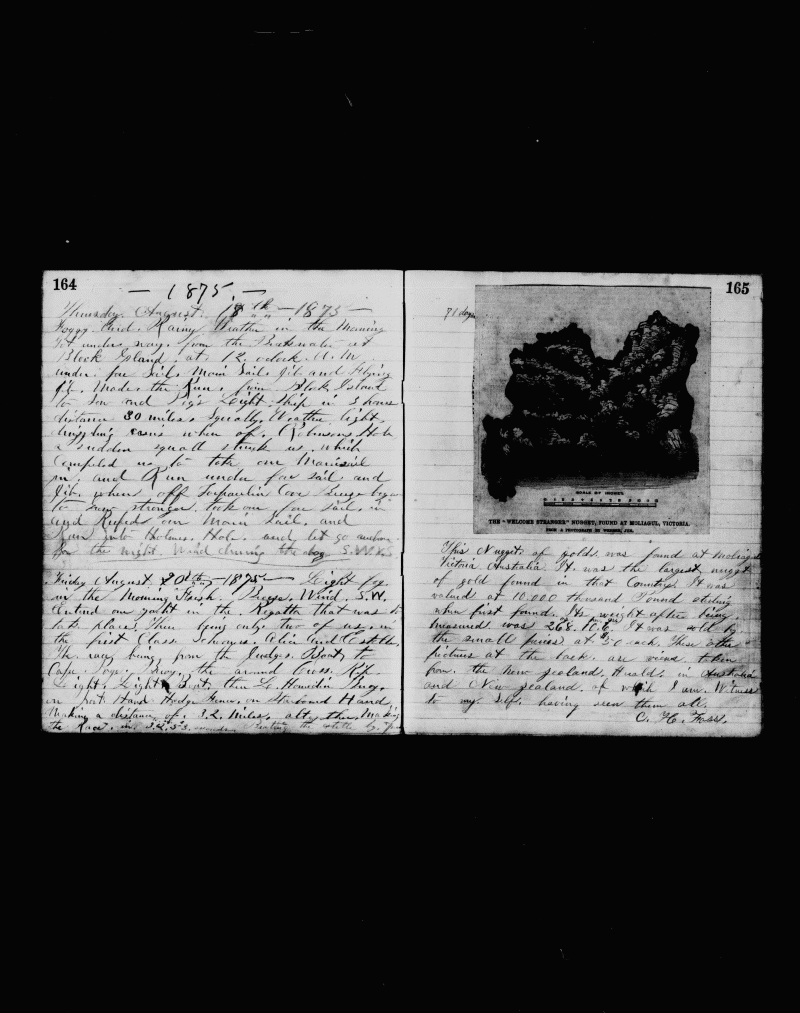 164
— 1875. —
Thursday August. 18th — 1875 —
Foggy and Rainy Weather in the Morning
Got under way from the Breakwater at
Block Island at 12 oclock A. M.
under fore Sail. Main Sail. Jib and Flying
Jib. Made the Run from Block Island
to Sow and Pigs Light Ship in 3 hours
distance 30 miles. Weather light
rain when of. Robinsons Hole
a sudden squall struck us which
compelled us to take our Mainsail
in. and Run under for sail and
Jib. when off Tarpaulin Cove Breeze began
to grow stronger. took our fore Sail in
and Reefed our Main Sail. and
Ran into Holmes Hole. and let go anchor
for the night. Wind during the day S.W.
Friday August 20th — 1875 — Light fog
in the Morning Fresh. Breeze. Wind. S.W.
Entered our yacht in the Regatta that was to
take place. There being only two of us. in
the first Class Schooners. Alice and Estelle.
The race being from the Judges. Boat, to
Cape. Poge. Buoy. the around Cross. Rip.
Light. Light Boat. then to Buoy.
on Port Hand Hedge Fence. on Starboard Hand.
Making a distance of. 32. Miles.
the Race. in 3.2.53. the Estelle by
165
71 days
SCALE OF INCHES.
THE "WELCOME STRANGER" NUGGET, FOUND AT MOLIAGUL, VICTORIA.
FROM A PHOTOGRAPH BY
This Nugget of gold. was found at Moliagul
Victoria Australia It was the largest nugget
of gold found in that Country. It was
valued at 10.000 thousand Pound sterling
when first found. Its weight after being
measured was 268. It was sold by
the small pieces at 50 each. These other
pictures at the back. are being taken
from. the New Zealand Herald. in Australia
and New Zealand. of which I am. Witness
to my Self. having seen them all.
C. H. Foss.